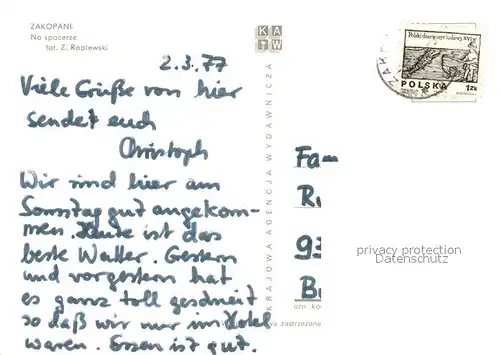 ZAKOPANE
Na spacerze
fot. Z. Raplewski
KAW
Polski drzeworyt ludowy XVI w.
POLSKA 1 ZŁ
ZAK
2.3.77
Viele Grüße von hier
sendet euch
Christoph
Wir sind hier am
Sonntag gut angekom-
men. Heute ist das
beste Wetter. Gestern
und vorgestern hat
es ganz toll geschneit
so daß wir nur im Hotel
waren. Essen ist gut.
KRAJOWA AGENCJA WYDAWNICZA
Fa
R
93
B
privacy protection
Datenschutz
zastrzeżone